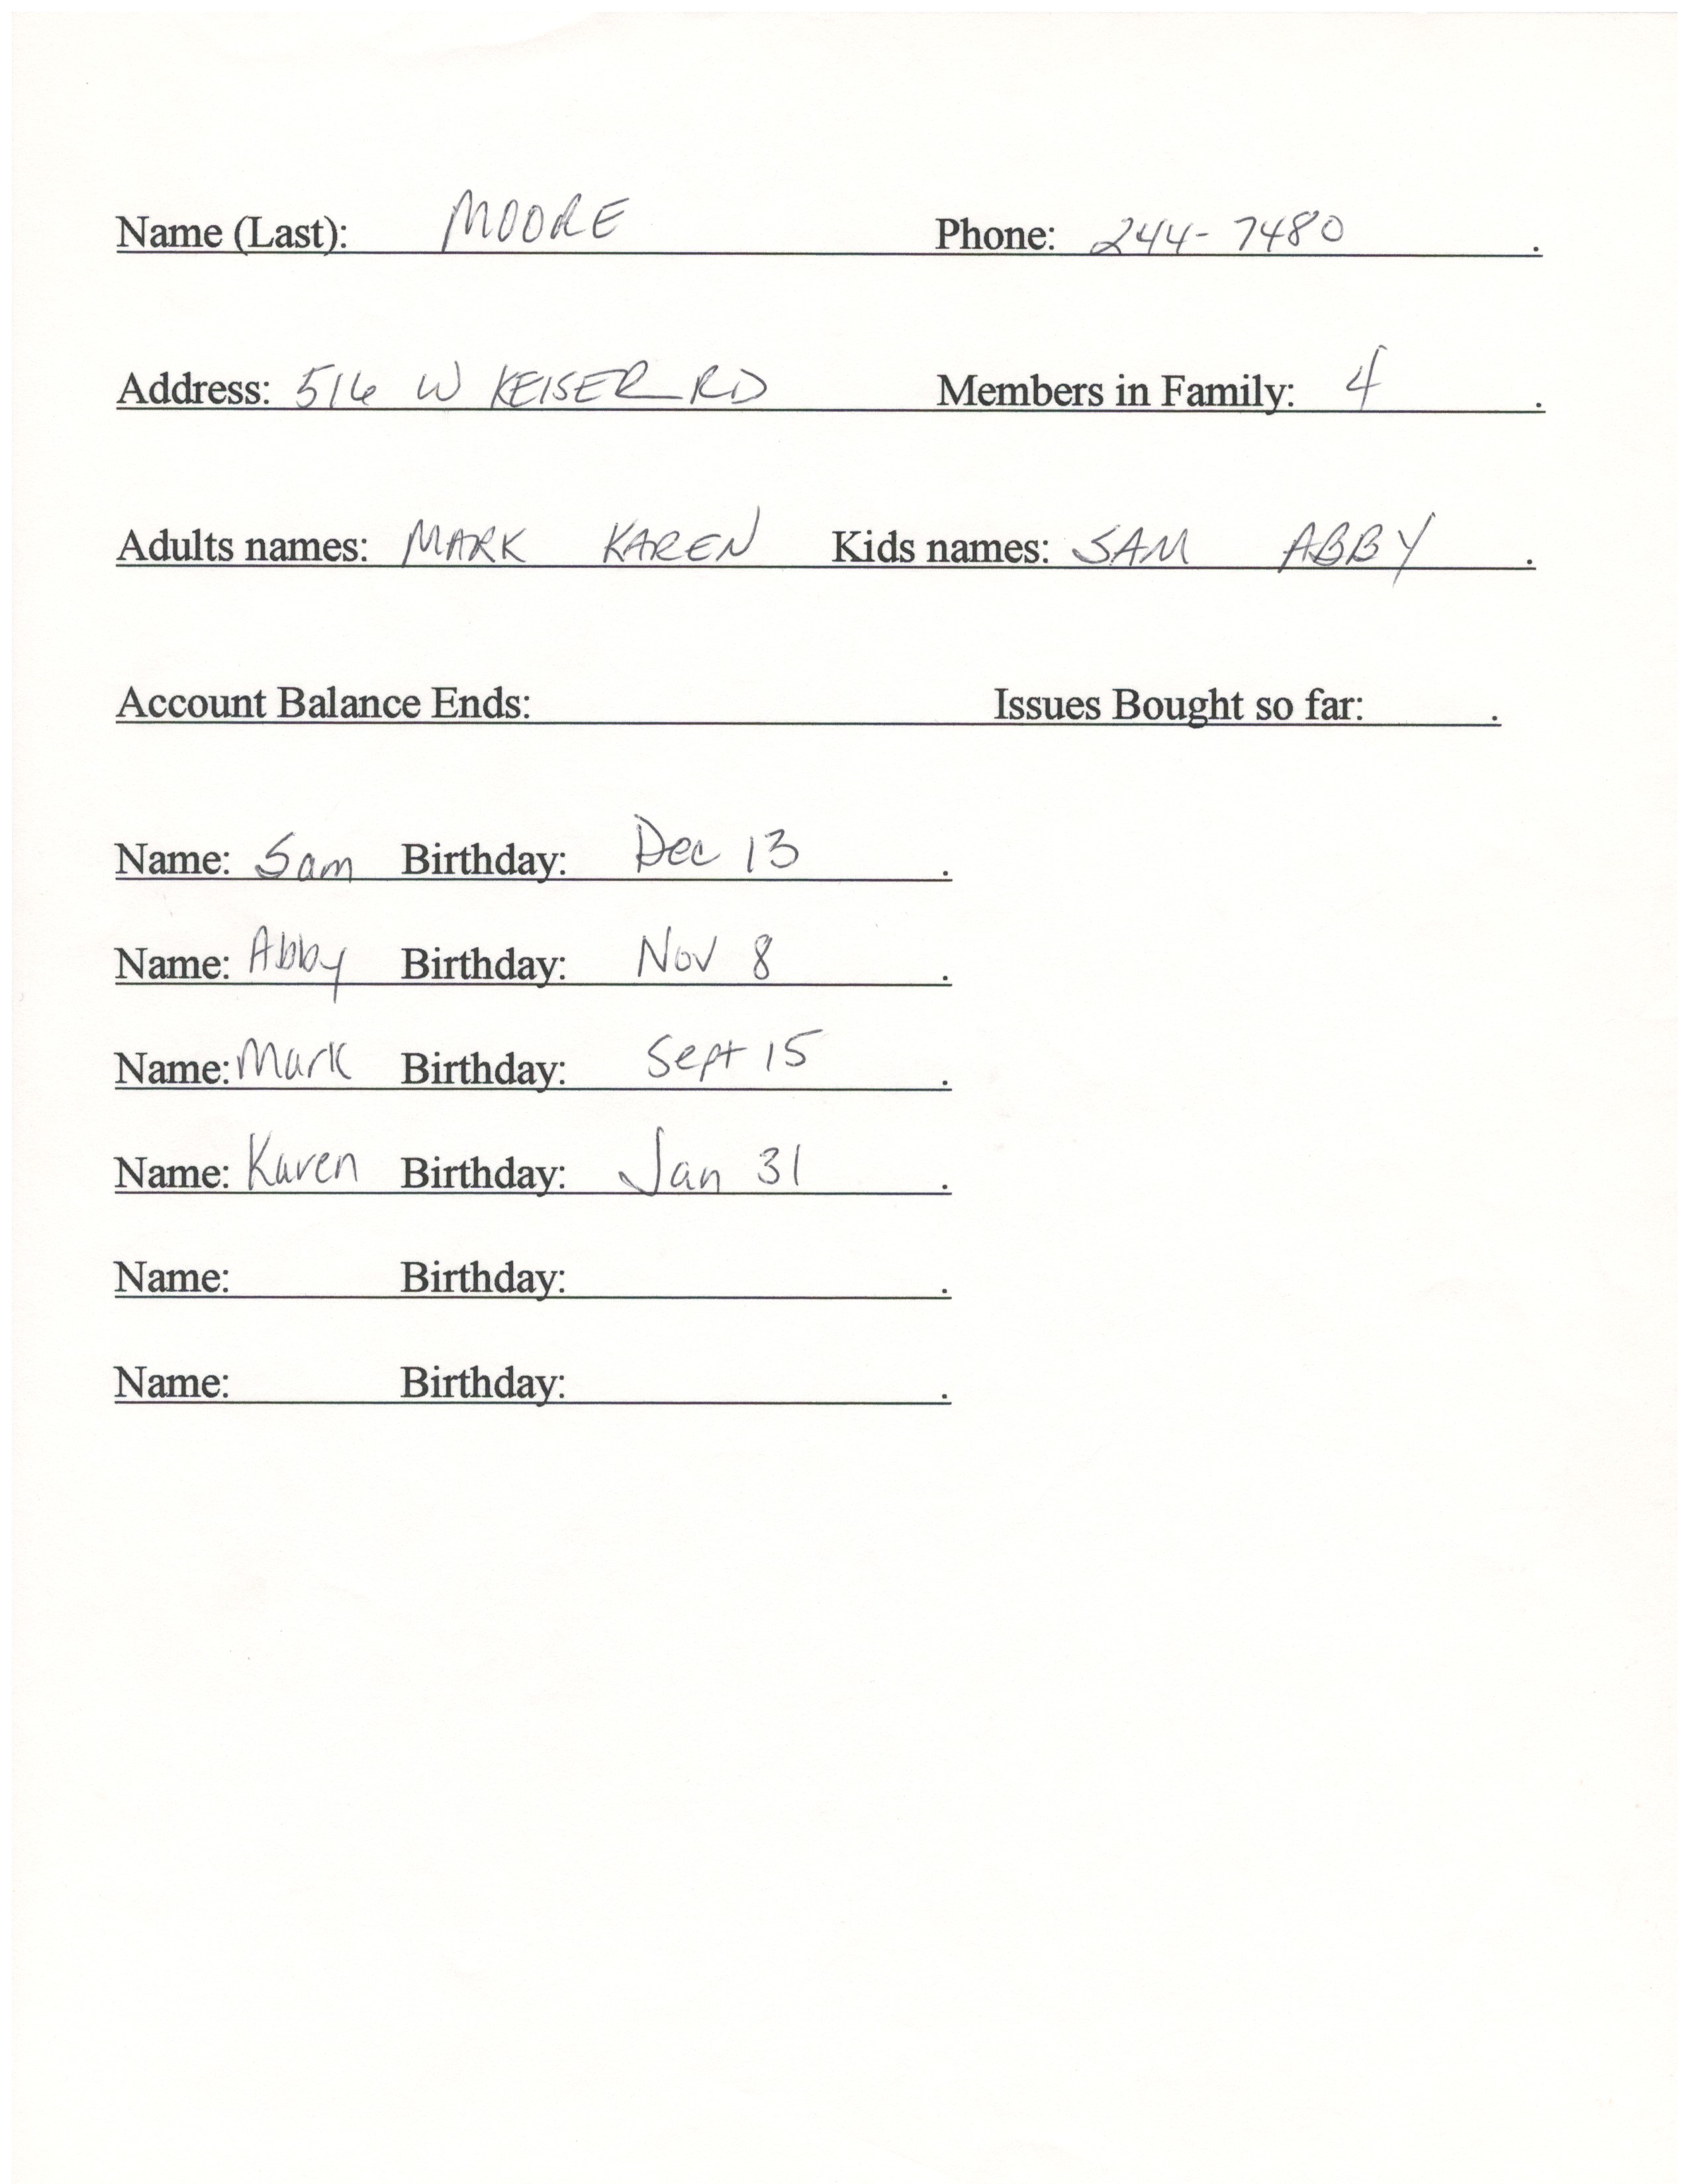 Name (Last): MOORE Phone: 244-7480 .
Address: 516 W KEISER RD Members in Family: 4 .
Adults names: MARK KAREN Kids names: SAM ABBY .
Account Balance Ends: Issues Bought so far: .
Name: Sam Birthday: Dec 13 .
Name: Abby Birthday: Nov 8 .
Name: Mark Birthday: Sept 15 .
Name: Karen Birthday: Jan 31 .
Name: Birthday: .
Name: Birthday: .